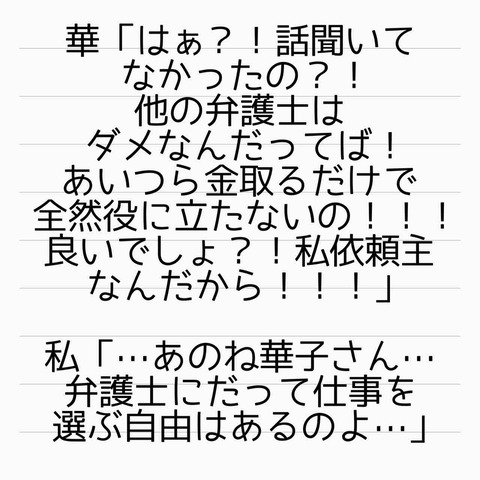 華「はぁ？！話聞いて
なかったの？！
他の弁護士は
ダメなんだってば！
あいつら金取るだけで
全然役に立たないの！！！
良いでしょ？！私依頼主
なんだから！！！」
私「…あのね華子さん…
弁護士にだって仕事を
選ぶ自由はあるのよ…」